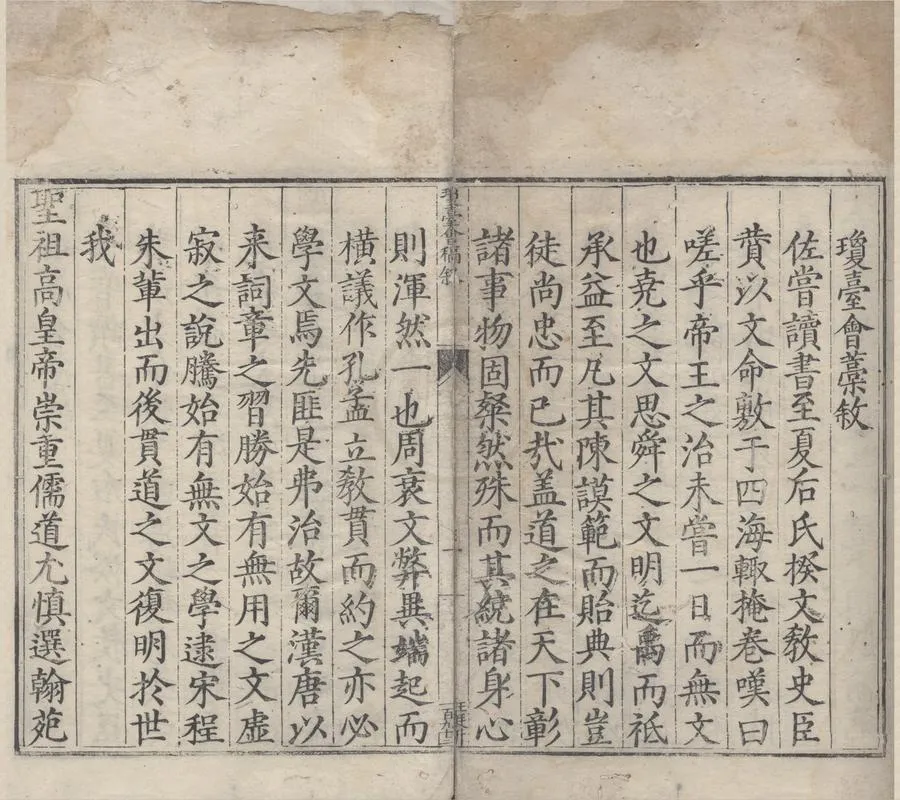 瓊臺會藁敘
佐嘗讀書至夏后氏揆文敎史臣
賁以文命敷于四海輙掩卷嘆曰
嗟乎帝王之治未嘗一日而無文
也堯之文思舜之文明迄禹而祗
承益至凡其陳謨範而貽典則豈
徒尚忠而已㢤盖道之在天下彰
諸事物固粲然殊而其統諸身心
瓊臺會稿敘
一
則渾然一也周衰文弊異端起而
橫議作孔孟立敎貫而約之亦必
學文焉先匪是弗治故爾漢唐以
来詞章之習勝始有無用之文虛
寂之說騰始有無文之學逮宋程
朱軰出而後貫道之文復明於世
我
聖祖高皇帝崇重儒道尤慎選翰苑